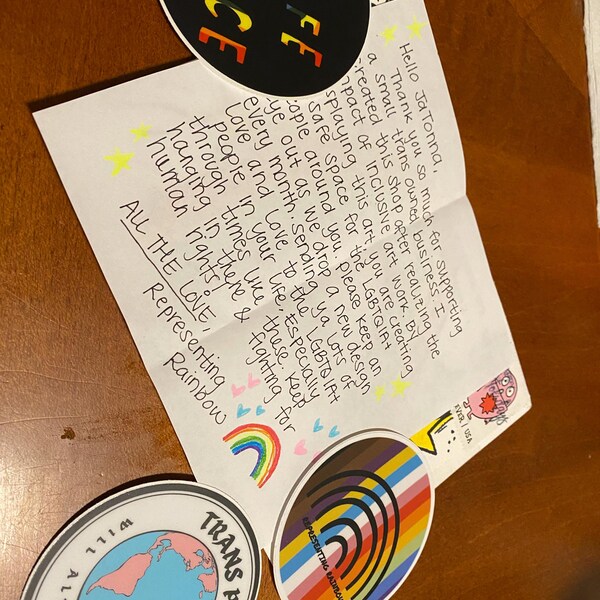 FF
CE
Hello JaTonna,
Thank you so much for supporting
a small trans owned business. I
created this shop after realizing the
impact of inclusive art work. By
splaying this art you are creating
safe space for the LGBTQIA+
ople around you. Please keep an
ye out as we drop a new design
every month. Sending ya lots of
love and love to the LGBTQIA+
people in your life. Especially
through times like these. Keep
hanging in there & fighting for
human rights!
ALL THE LOVE,
Representing
Rainbow
EVER / USA
REPRESENTING RAINBOW
TRANS
WILL AL